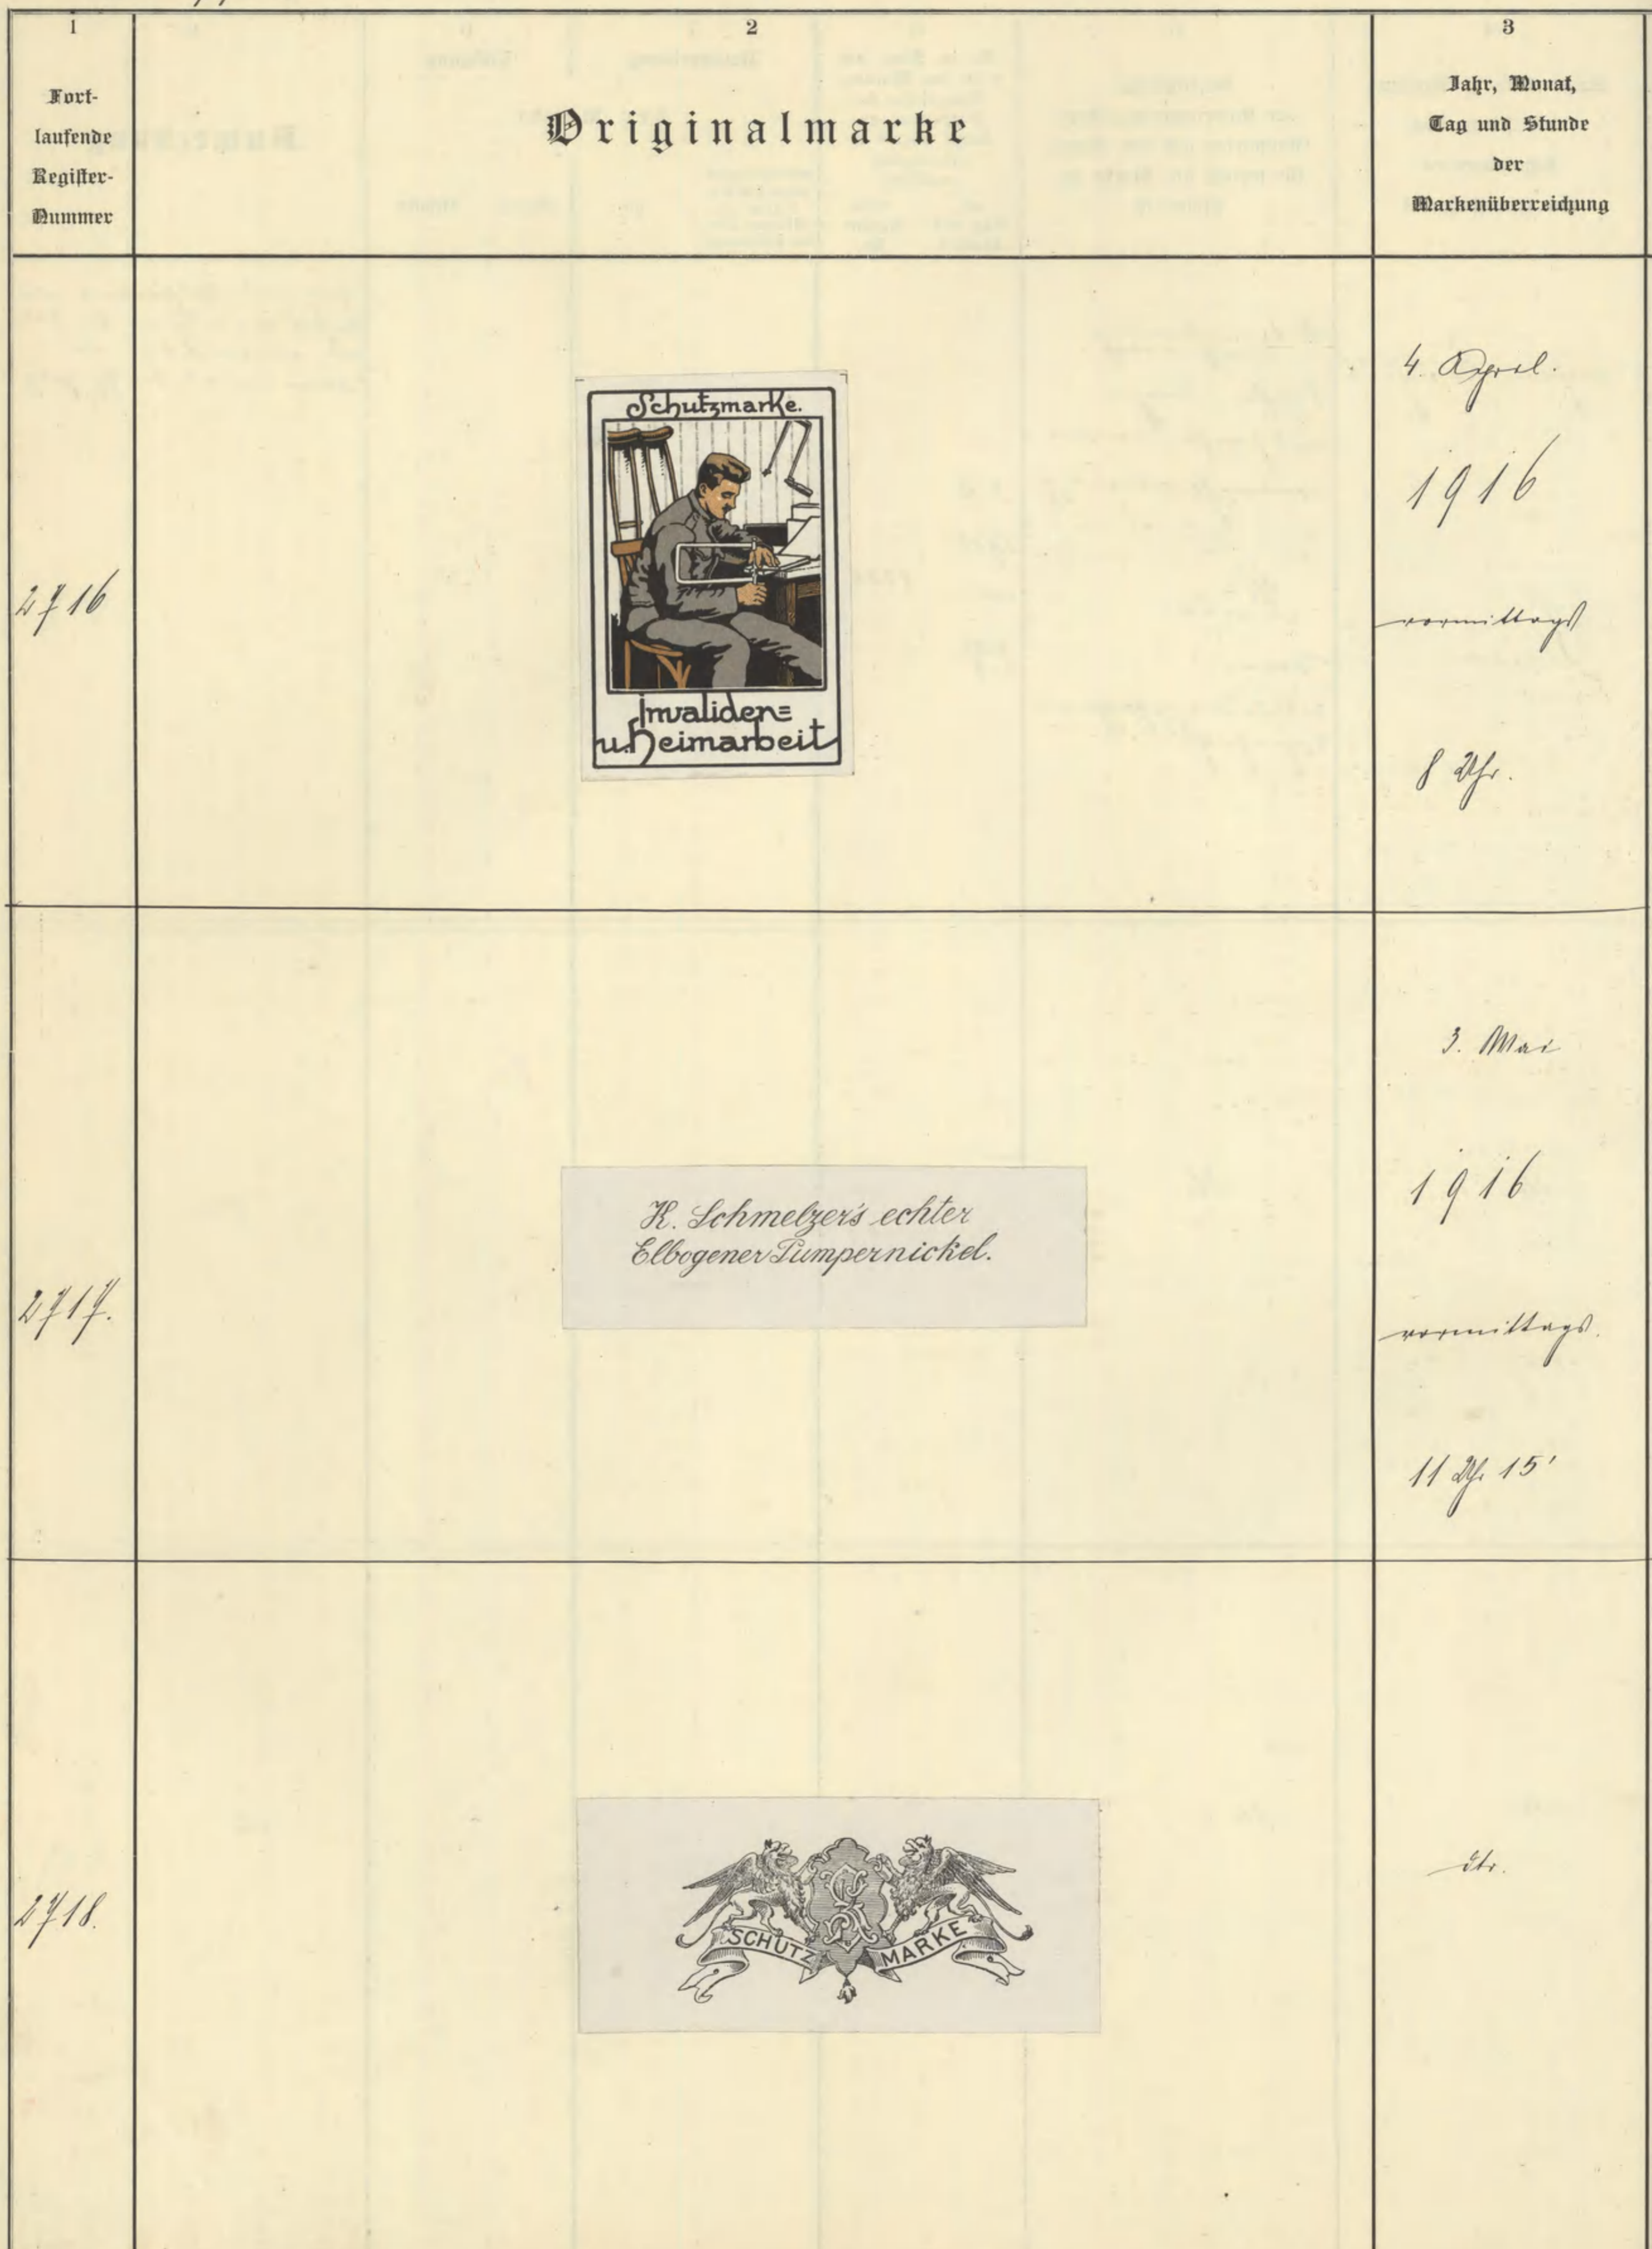 1
Fort-
laufende
Register-
Nummer
2
Originalmarke
3
Jahr, Monat,
Tag und Stunde
der
Markenüberreichung
2716
Schutzmarke.
Invaliden=
u. Heimarbeit
4. April.
1916
vormittags
8 Uhr.
2717.
K. Schmelzer's echter
Elbogener Pumpernickel.
3. Mai
1916
vormittags.
11 Uhr 15'
2718.
SCHUTZ MARKE
dto.